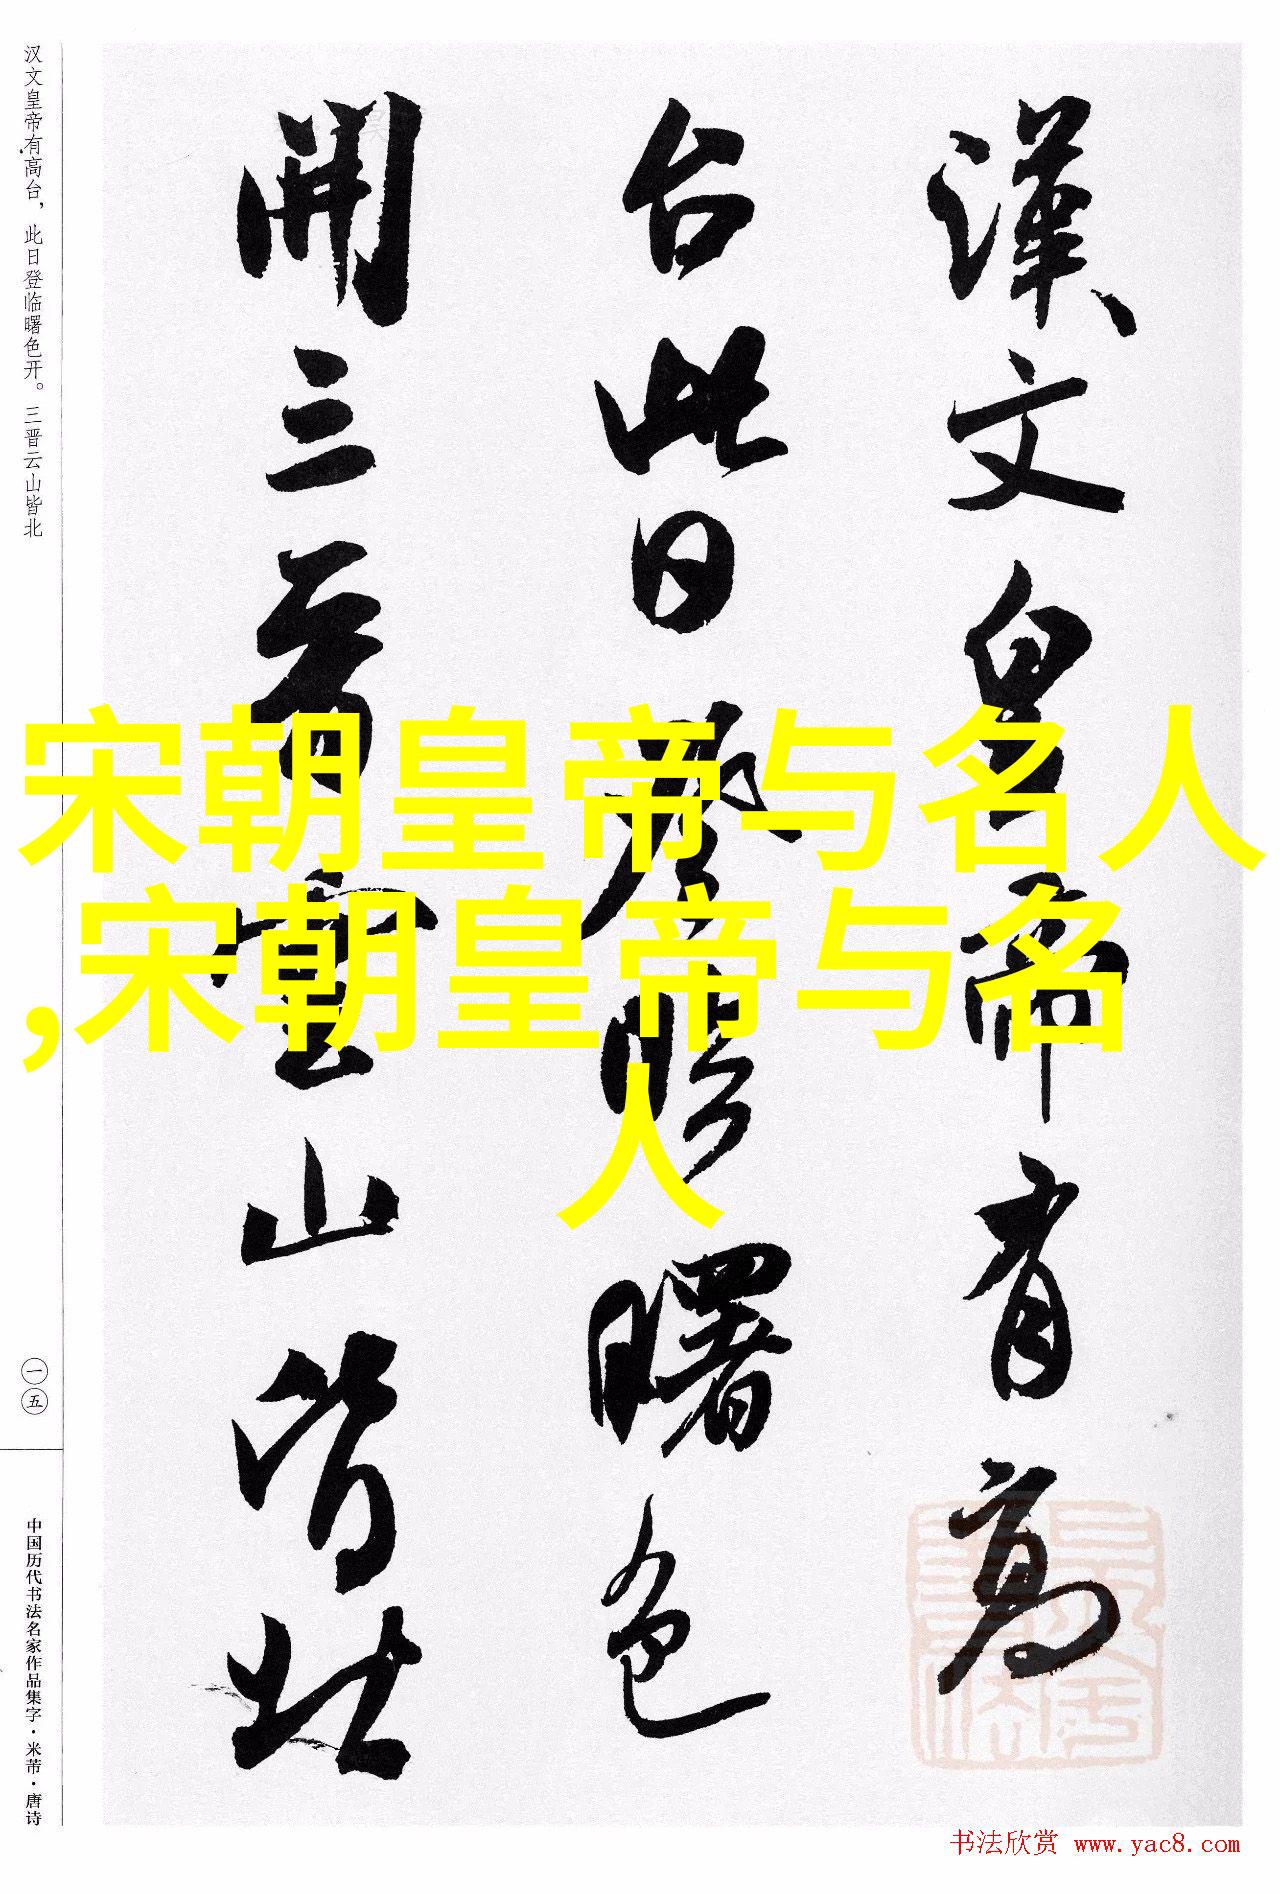 漢文皇帝有高
台此日登临曙色
開三晋雲山皆北
汉文皇帝有高台，此日登临曙色开。三晋云山皆北
一五
中国历代书法名家作品集字·米芾·唐诗
宋朝皇帝与名人
,宋朝皇帝与名
人
书法欣赏 www.yac8.com